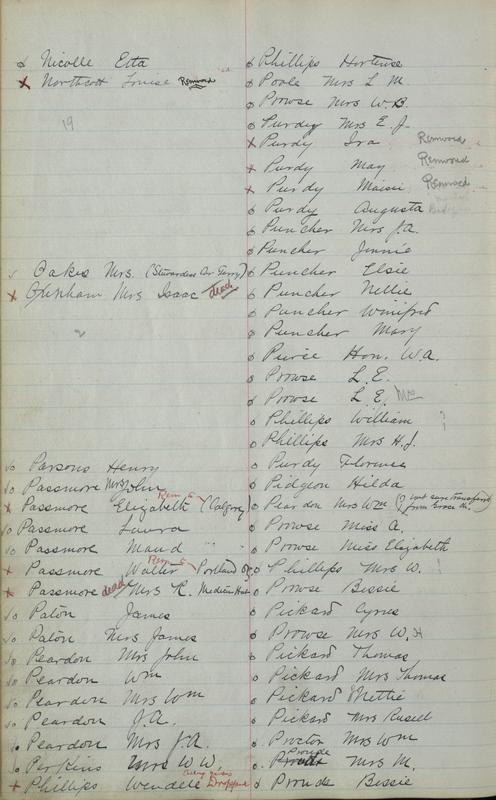 Nicolle Etta
Northcott Louise Removed
19
Oakes Mrs. (Stewardess Dr. Terry)
Oxenham Mrs Isaac dead
2
Parsons Henry
Passmore Mrs John
Passmore Elizabeth (Calgary)
Passmore Laura
Passmore Maud
Passmore Walter Portland
Passmore dead Mrs R. Medicine Hat
Paton James
Paton Mrs James
Peardon Mrs John
Peardon Wm
Peardon Mrs Wm
Peardon J.A.
Peardon Mrs J.A.
Perkins Mrs W.W.
Phillips Wendell Dropped
Phillips Hortense
Poole Mrs L. M.
Prowse Mrs W.B.
Purdy Mrs E. J.
Purdy Ira Removed
Purdy May Removed
Purdy Maisie Removed
Purdy Augusta
Puncher Mrs J.A.
Puncher Jennie
Puncher Elsie
Puncher Nellie
Puncher Winifred
Puncher Mary
Pierce Hon. W.A.
Prowse L. E.
Prowse L. E. Mrs
Phillips William ?
Phillips Mrs H.J.
Purdy Florence
Pidgeon Hilda
Peardon Mrs Wm (? not sure transferred from
Prowse Miss A.
Prowse Miss Elizabeth
Phillips Mrs W. !
Prowse Bessie
Pickard Cyrus
Prowse Mrs W. H
Pickard Thomas
Pickard Mrs Thomas
Pickard Nettie
Pickard Mrs Russell
Proctor Mrs Wm
Proude Mrs M.
Proude Bessie